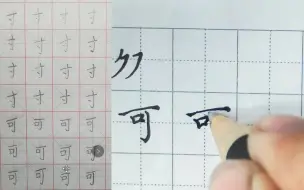 寸 寸 寸 寸
寸 寸 寸 寸
寸 寸 寸 寸
寸 寸 寸 寸
可 可 可 可
可 可 可 可
可 可 可 可
可 可